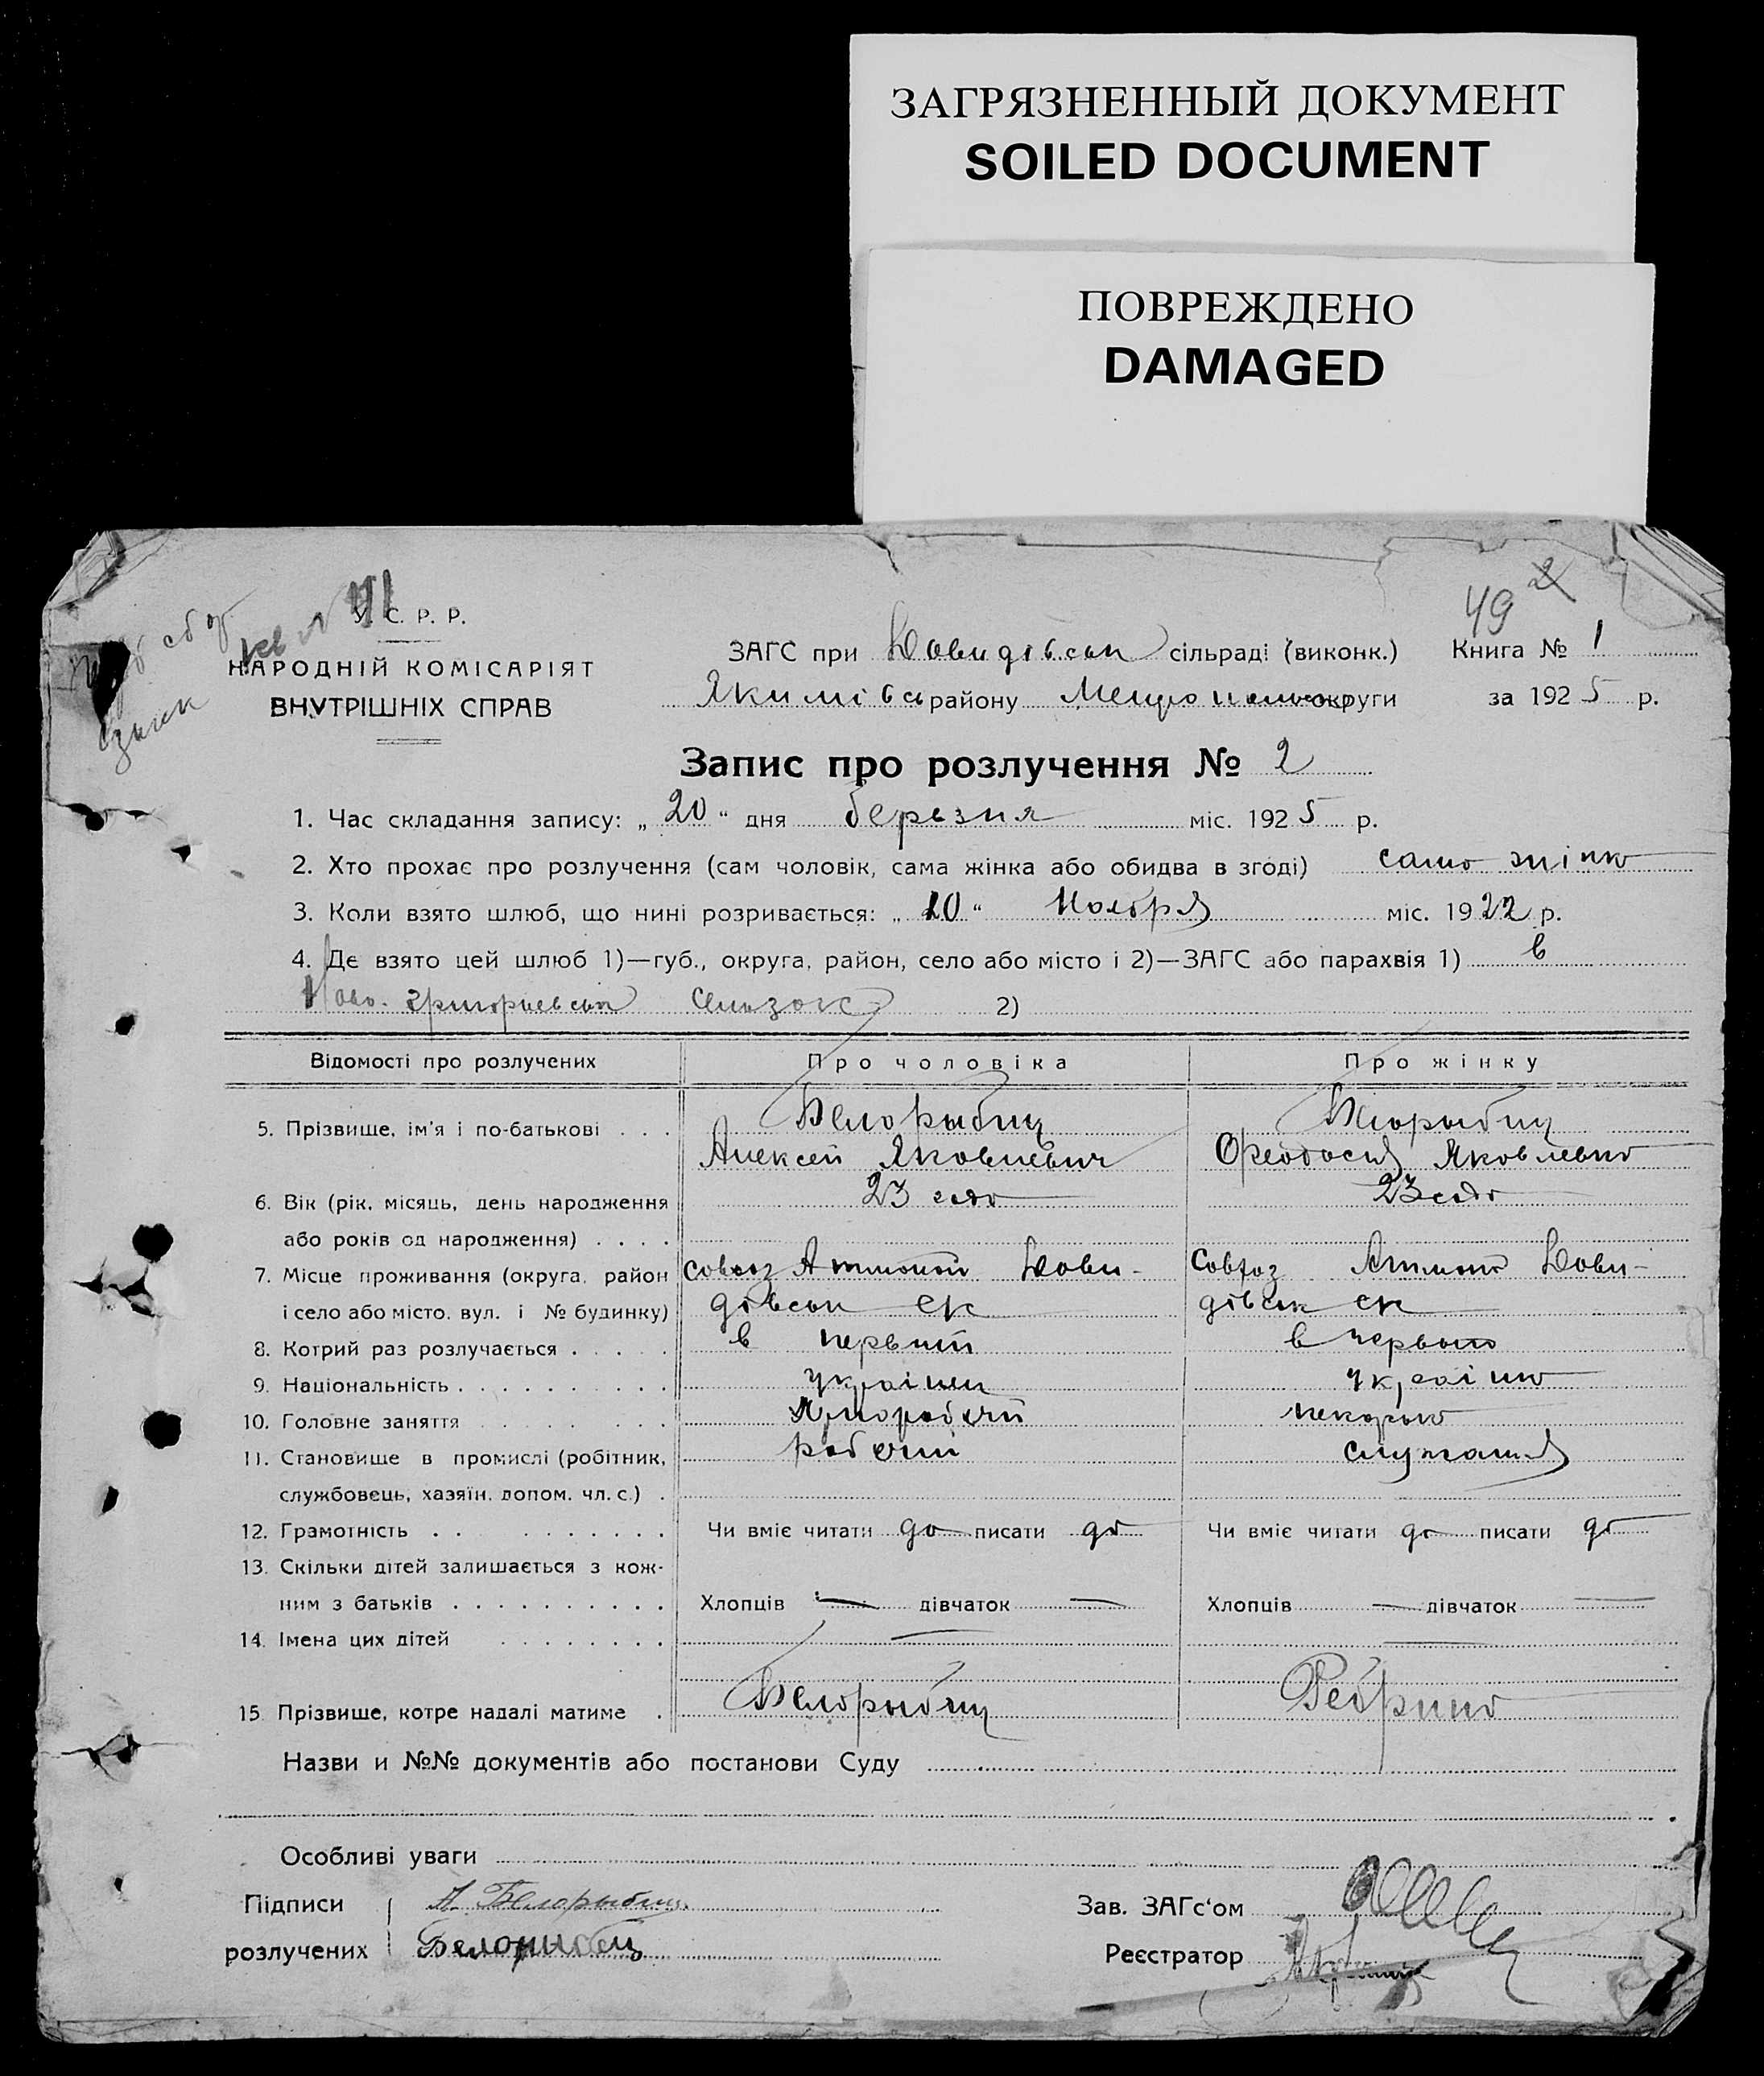 ЗАГРЯЗНЕННЫЙ ДОКУМЕНТ
SOILED DOCUMENT
ПОВРЕЖДЕНО
DAMAGED
49 2
У. С. Р. Р.
НАРОДНІЙ КОМІСАРІЯТ
ВНУТРІШНІХ СПРАВ
ЗАГС при Давидівськ сільраді (виконк.) Книга № 1
Якимівськ району округи за 1925 р.
Запис про розлучення № 2
1. Час складання запису: „20“ дня березня міс. 1925 р.
2. Хто прохає про розлучення (сам чоловік, сама жінка або обидва в згоді) сама жінка
3. Коли взято шлюб, що нині розривається: „10“ Ноября міс. 1922 р.
4. Де взято цей шлюб 1)—губ., округа, район, село або місто і 2)—ЗАГС або парахвія 1) в
Ново-григориевськ 2)
Відомості про розлучених Про чоловіка Про жінку
5. Прізвище, ім'я і по-батькові . . . Белорыбец Белорыбец
Алексей Яковлевич Феодосия Яковлевна
6. Вік (рік, місяць, день народження 23 года 23 года
або років од народження) . . . .
7. Місце проживання (округа, район совхоз Давы- Совхоз Давы-
і село або місто, вул. і № будинку) дівськ ск дівськ ск
8. Котрий раз розлучається . . . . . в первый в первый
9. Національність . . . . . . . . . . українец українка
10. Головне заняття . . . . . . . пекарка
11. Становище в промислі (робітник, рабочий служащая
службовець, хазяїн, допом. чл. с.) .
12. Грамотність . . . . . . . . . Чи вміє читати да писати да Чи вміє читати да писати да
13. Скільки дітей залишається з кож-
ним з батьків . . . . . . . . . . Хлопців — дівчаток — Хлопців — дівчаток —
14. Імена цих дітей . . . . . . . . — —
15. Прізвище, котре надалі матиме . Белорыбец Ребрина
Назви и №№ документів або постанови Суду
Особливі уваги
Підписи А. Белорыбец Зав. ЗАГс'ом
розлучених Белорибец Реєстратор